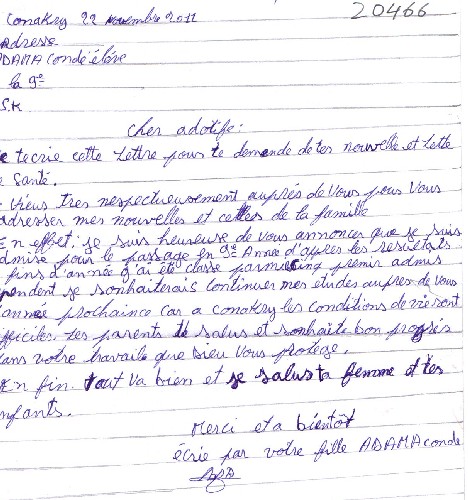 20466
Conakry 22 novembre 2011
adresse
ADAMA Condé élève
la 9e
S.K
Cher adotife:
Je t'ecrie cette Lettre pour te demende de tes nouvelle et Lette
e santé.
viens tres respectueusement auprés de vous pour vous
adresser mes nouvelles et celles de la famille
En effet; je suis heureuse de vous annoncer que je suis
admise pour le passage en 9e Année d'apres les resultats
fins d'année g'ai été classé parmi cinq premir admis
pendent je sonhaiterais continuer mes etudes aupres de vous
année prochaince car a conakry les conditions de vie sont
fficiles. Les parents te salus et sonhaite bon progrés
ans votre travaile que Dieu vous protege.
En fin. tout va bien et je salus ta femme et tes
nfants.
Merci et a bientôt
écrie par votre fille ADAMA conde